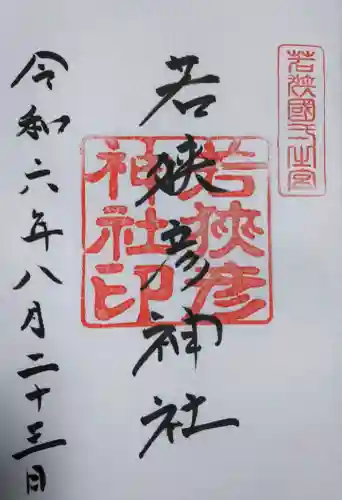 若狭國一之宮
若狹彦神社
若狹彦
神社印
令和六年八月二十三日